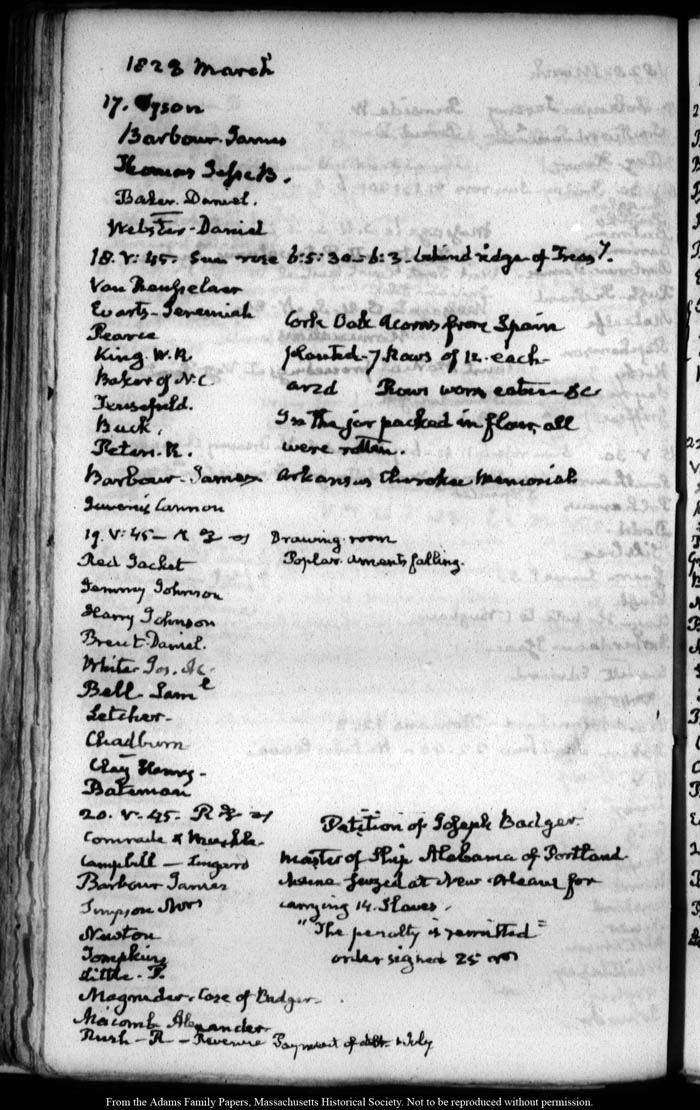 1828 March
17. Tyson
Barbour. James
Thomas Jesse B.
Baker. Daniel.
Webster-Daniel
18. V:45. Sun rose 6:5:30-6:3. behind ridge of Trees
Van Rensselaer
Evarts-Jeremiah
Cork Oak Acorns from Spain
Pearce
King. W.R
planted-7 Rows of 12. each-
Baker of N.C
and Rows worm eaten &c
Buck.
In the jar packed in flour, all
Peters. R.
were rotten.
Barbour-James
Arkansas Cherokee Memorial
Cannon
19. V:45-
Drawing-room
Red Jacket
Poplar aments falling.
Jemmy Johnson
Harry Johnson
Brent-Daniel.
White Jos.
Bell Saml
Letcher-
Chadburn
Clay Henry-
Bateman
20. V-45.
Petition of Joseph Badger.
Comrade &
Campbell-
Master of Ship Alabama of Portland
Barbour James
Maine Seized at New Orleans for
Simpson Mrs
carrying 14. Slaves.
Newton
"The penalty is remitted"
Tompkins
order signed 25
Little. P.
Magruder-Case of Badger.
Macomb Alexander
Rush-R-Revenue Payment of debt July
From the Adams Family Papers, Massachusetts Historical Society. Not to be reproduced without permission.